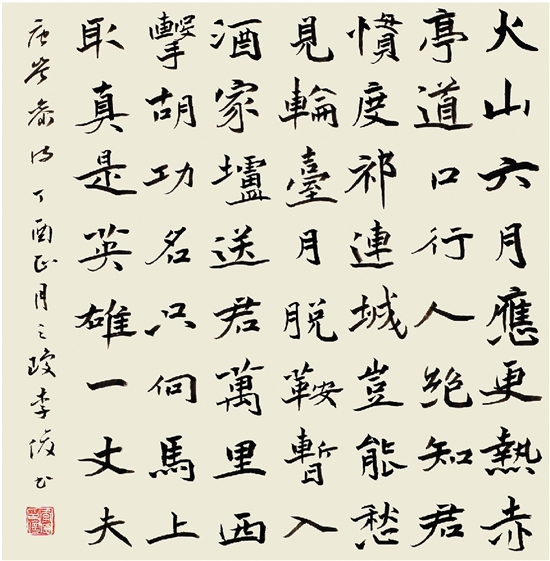 火山六月應更熱赤
亭道口行人絕知君
慣度祁連城豈能愁
見輪臺月脫鞍暫入
酒家壚送君萬里西
擊胡功名只向馬上
取真是英雄一丈夫
唐岑參詩丁酉正月之李俊书